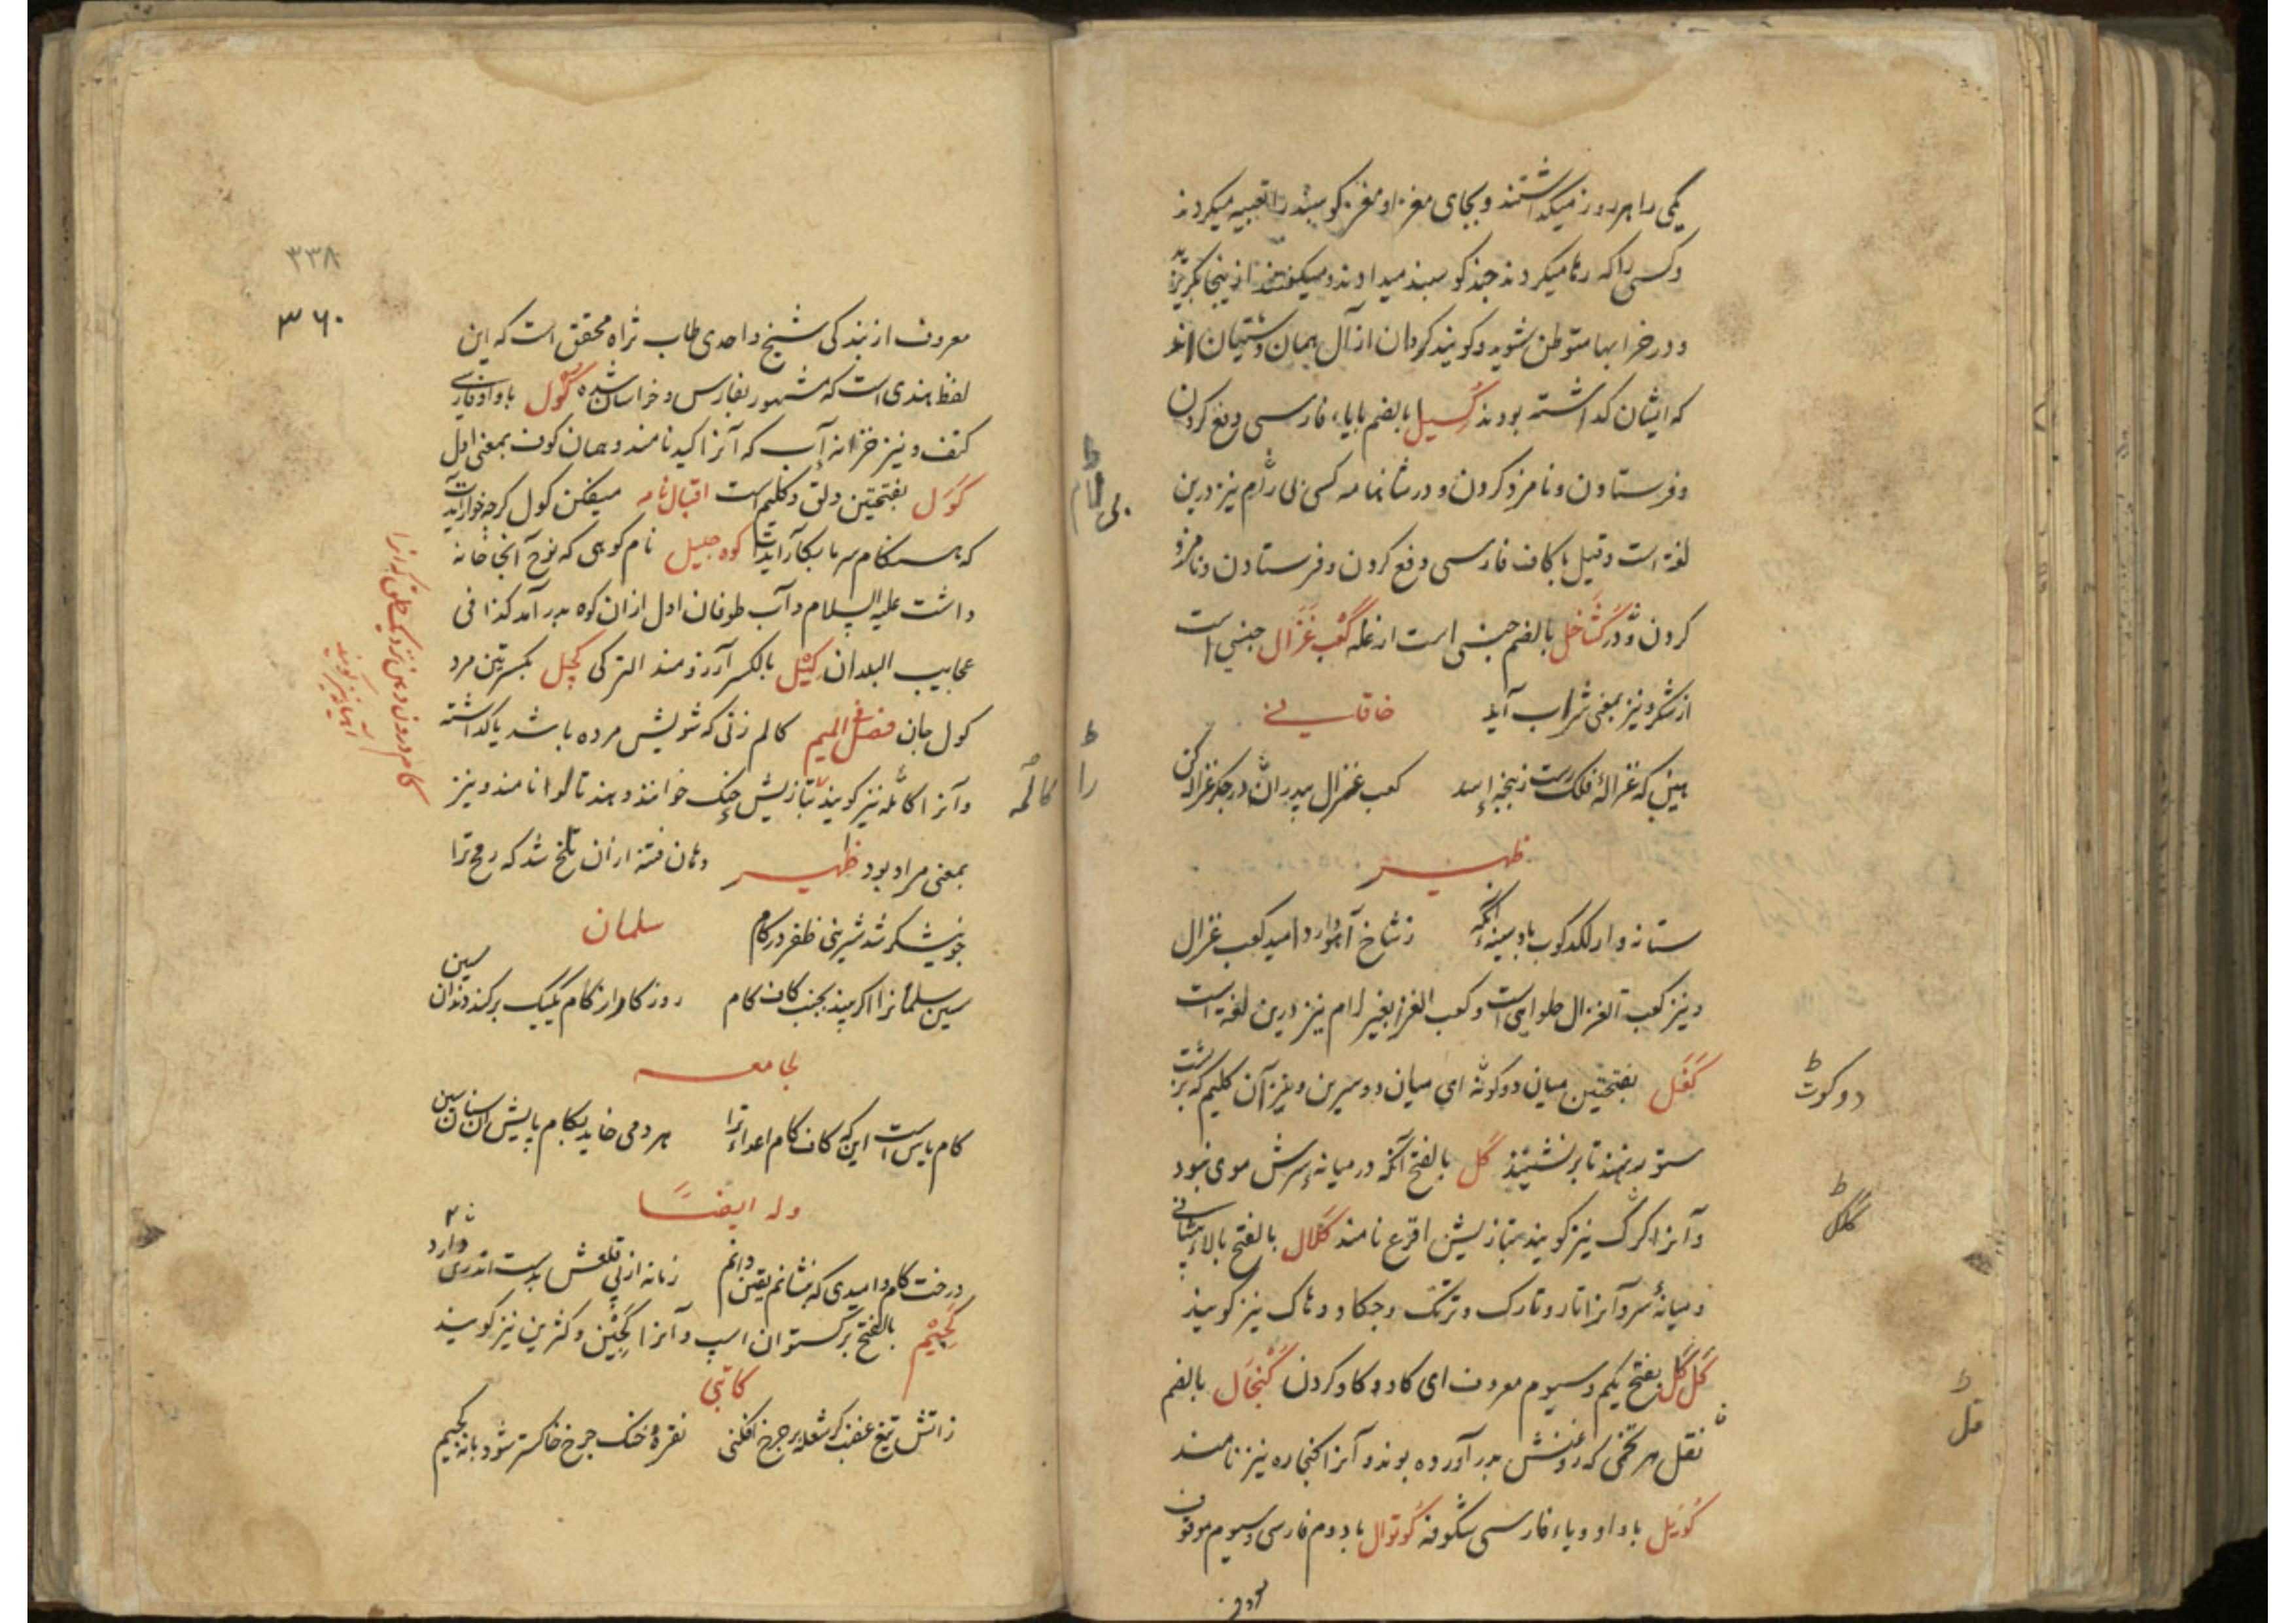 یکی را هر روز میکذاشتند و بجای مغز او مغز کوسبند را تعبیه میکردند
و کسی را که رها میکردند چند کوسبند میدادند و میکفتند از ینجا بکریزید
و در خرابها متوطن شوید و کویند کردان از آل همان اند
که ایشان کذاشته بودند گسیل بالضم بایاء فارسی دفع کردن
و فرستادن و نامزد کردن و در شانامه کسی بی لام نیز درین
لغة است و قیل با کاف فارسی دفع کردن و فرستادن و نامزد
کردن بالضم جنسی است از غله کعب غزال جنسی است
از شکر و نیز بمعنی شراب آید خاقانی
بینی که غزالۀ فلک کعب غزال
ظهیر
ز شاخ آهو دارد امید کعب غزال
و نیز کعب الغزال حلوایی است و کعب الغزا بغیر لام نیز درین لغة است
کفل بفتحتین میان دوکونه ای میان دو سرین و نیز آن کلیم که بر پشت
ستور نهند تا بر نشینند گل بالفتح آنکه در میانه سرش موی نبود
و آنرا کرک نیز کویند بتازیش اقرع نامند کلال بالفتح بالاء پیشانی
و میانۀ سر و آنرا تار و تارک و ترک و چکاد و هاک نیز کویند
گل گل بفتح یکم و سیوم معروف ای کاو و کاو کردن کنجال بالضم
نقل هر تخمی که روغنش بدر آورده بوند و آنرا کنجاره نیز نامند
کوپل با واو و باء فارسی شکوفه کوتوال با دوم فارسی و سیوم موقوف
معروف
بی لام
را
دوکوت
قل
۳۳۸
۳۶۰
معروف از بندکی شیخ واحدی طاب ثراه محقق است که این
لفظ هندی است که مشهور بفارس و خراسان شده کول با واو فارسی
کتف و نیز خزانه آب که آنرا نامند و همان کوف بمعنی اول
کول بفتحتین دلق و کلیم است اقبال نامه میفکن کول کرچه خوار آیدت
که هنکام سرما بکار آیدت کوه جلیل نام کوهی که نوح آنجا خانه
داشت علیه السلام و آب طوفان اول از ان کوه بدر آمد کذا فی
عجایب البلدان کیل بالکسر آرزومند الترکی کچل بکسرتین مرد
کول جان فصل المیم کالم زنی که شویش مرده باشد یا کذاشته
و آنرا کالمه نیز کویند بتازیش خوانند و هند نامند و نیز
بمعنی مراد بود ظهیر دهان فتنه از ان تلخ شد که رمح ترا
چو نیشکر شد شیرینی ظفر در کام سلمان
سین سلمانرا اکر بیند بجنب کاف کام روزکار از کام یکیک برکند دندان سین
لجامعه
کام یابس است این که کاف کام اعداء ترا هر دمی خاید بکام
وله ایضا
درخت کام و امیدی که بنشانم یقین دانم زمانه از پی قلعش بدست اندر دارد
کجیم بالفتح برکستوان اسپ و آنرا کجین و کژین نیز کویند
کاتبی
ز آتش تیغ غضب کر شعله بر چرخ افکنی نقرۀ خنک چرخ خاکستر شود بانه کجیم
کالمه